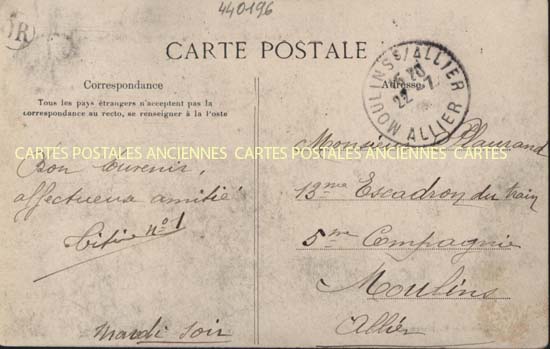 440196
CARTE POSTALE
Correspondance
Tous les pays étrangers n'acceptent pas la
correspondance au recto, se renseigner à la Poste
Bon Souvenir,
affectueuse amitié
n° 1
Mardi soir
Adresse
MOULINS S/ ALLIER
22 - 7
ALLIER
Monsieur
13me Escadron du train
5me Compagnie
Moulins
Allier
CARTES POSTALES ANCIENNES CARTES POSTALES ANCIENNES CARTES POSTALES ANCIENNES